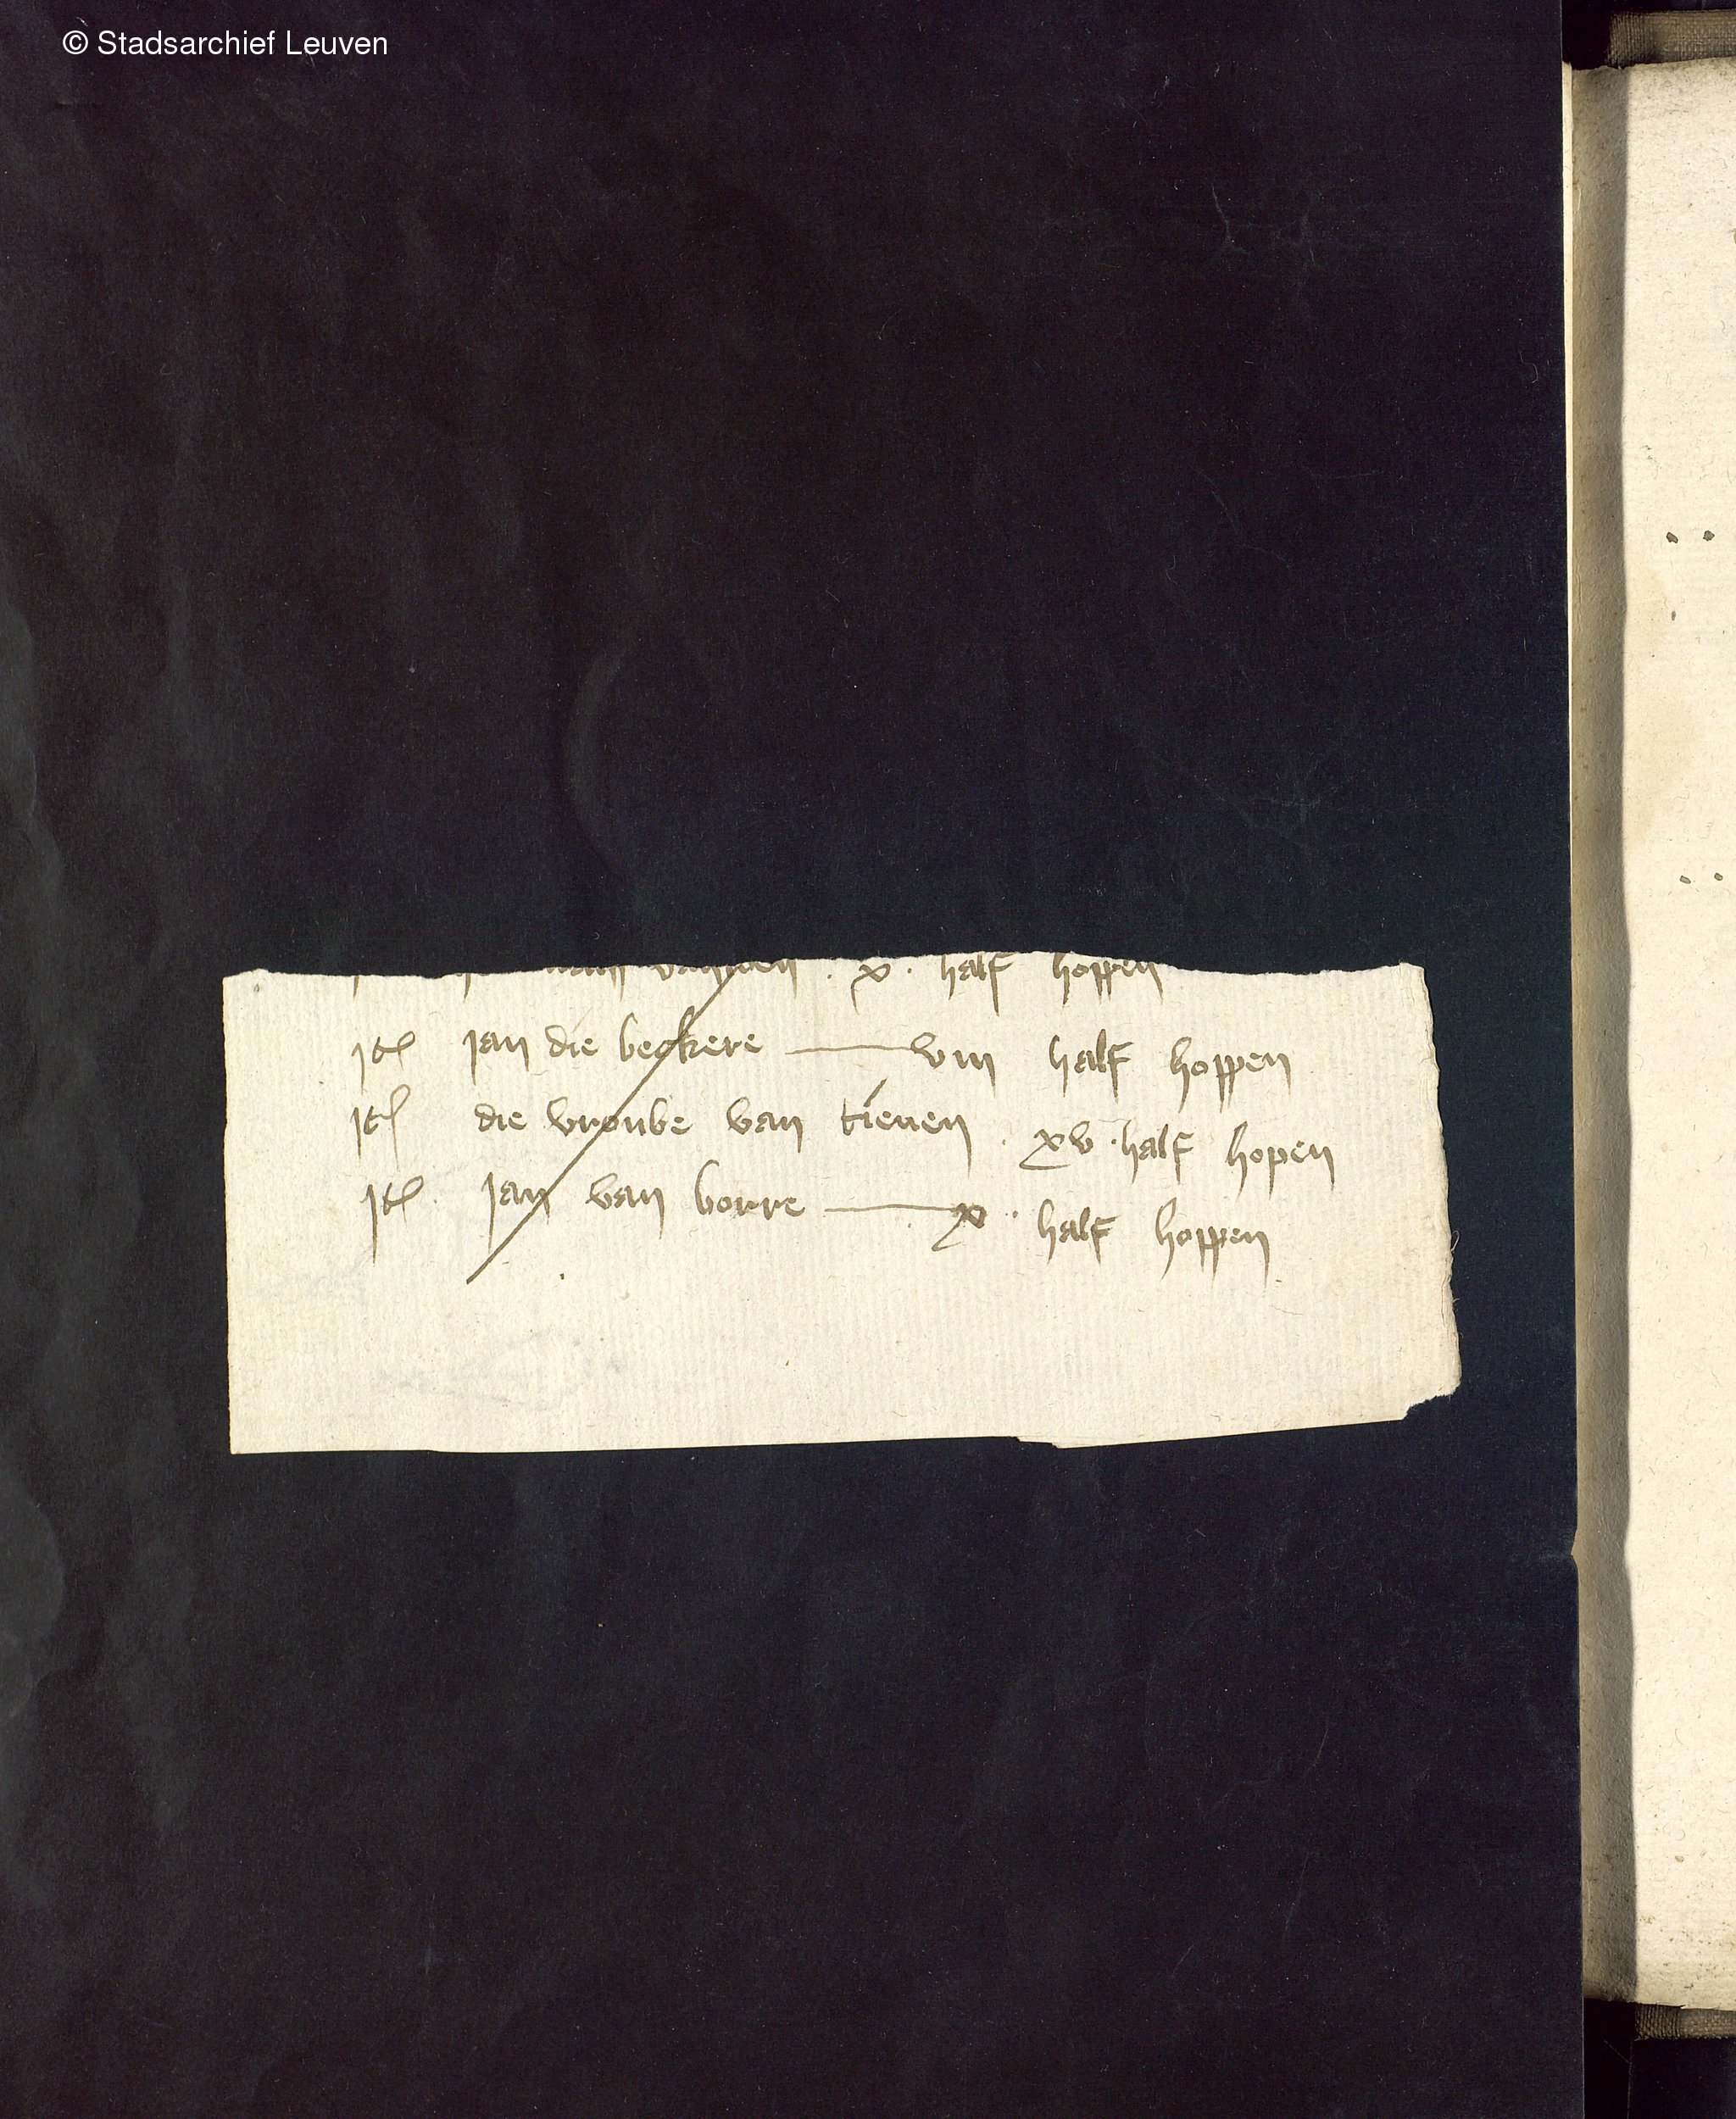 © Stadsarchief Leuven
x · half hoppen
It Jan die beckere — viii half hoppen
It die vroube van tienen · xv · half hopen
It Jan van borre — x · half hoppen